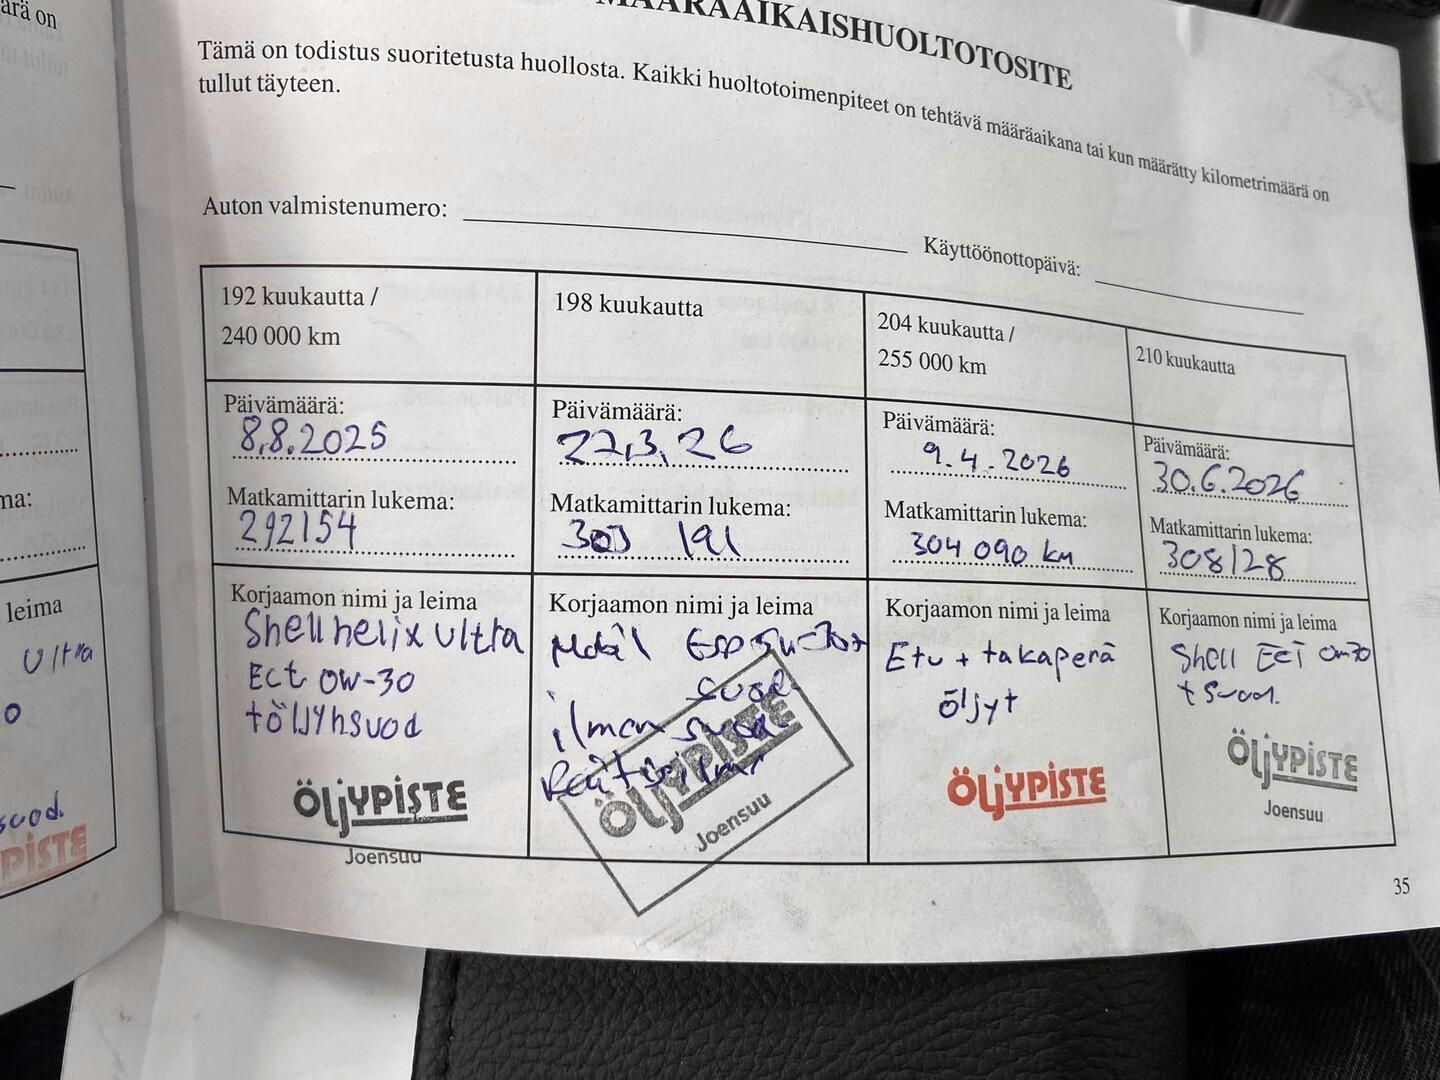 ärä on
MÄÄRÄAIKAISHUOLTOTOSITE
Tämä on todistus suoritetusta huollosta. Kaikki huoltotoimenpiteet on tehtävä määräaikana tai kun määrätty kilometrimäärä on
tullut täyteen.
Auton valmistenumero:
Käyttöönottopäivä:
192 kuukautta /
240 000 km
Päivämäärä:
8.8.2025
Matkamittarin lukema:
292154
Korjaamon nimi ja leima
Shell helix ultra
Ect 0W-30
+öljyhsuod
ÖLJYPISTE
Joensuu
198 kuukautta
Päivämäärä:
27.3.26
Matkamittarin lukema:
303 191
Korjaamon nimi ja leima
Mobil ESP 5w-30+
suod.
ilman suod.
ÖLJYPISTE
Joensuu
204 kuukautta /
255 000 km
Päivämäärä:
9.4.2026
Matkamittarin lukema:
304 090 km
Korjaamon nimi ja leima
Etu + takaperä
öljyt
ÖLJYPISTE
210 kuukautta
Päivämäärä:
30.6.2026
Matkamittarin lukema:
308128
Korjaamon nimi ja leima
Shell ECT 0w30
+ suod.
ÖLJYPISTE
Joensuu
ma:
leima
Ultra
0
suod.
PISTE
35